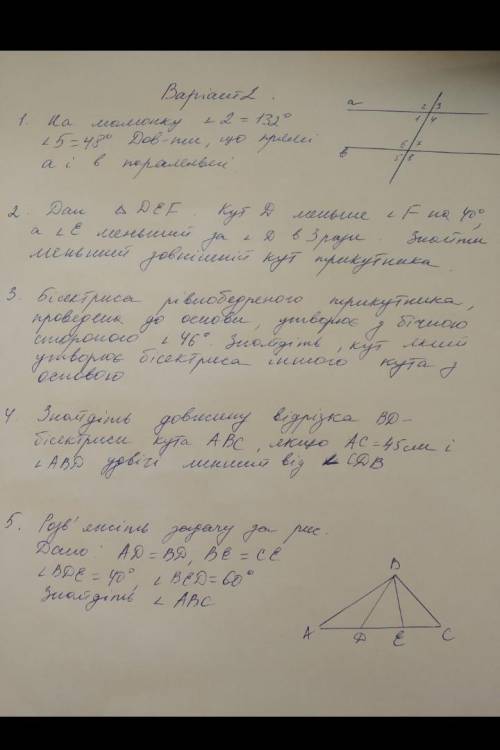 Варіант 2.
1. На малюнку ∠2 = 132°
∠5 = 48° Дов-ти, що прямі
a і b паралельні
a
2 3
1 4
b
6 7
5 8
2. Дан △ DEF. Кут D меньше ∠F на 40°,
а ∠E меньший за ∠D в 3 рази. Знайти
меньший зовнішній кут трикутника.
3. Бісектриса рівнобедреного трикутника,
проведена до основи, утворює з бічною
стороною ∠46°. Знайдіть, кут який
утворює бісектриса іншого кута з
основою
4. Знайдіть довжину відрізка BD-
бісектриси кута ABC, якщо AC = 45см і
∠ABD удвічі менший від ∠CDB
5. Розв'яжіть задачу за рис.
Дано: AD = BD, BE = CE
∠BDE = 40°, ∠BED = 60°
Знайдіть ∠ABC
B
A D E C